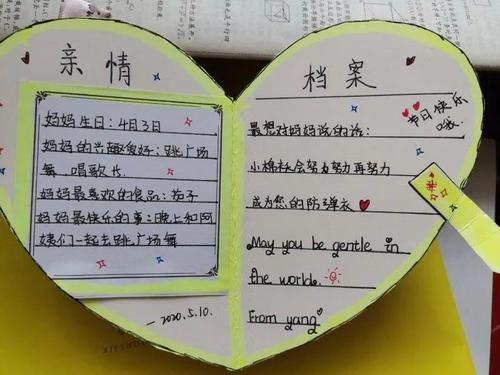 亲情
妈妈生日：4月3日
妈妈的兴趣爱好：跳广场
舞、唱歌
妈妈最喜欢的食品：茄子
妈妈最快乐的事：晚上和阿
姨们一起去跳广场舞
—2020.5.10.
档案
节日快乐
哦
最想对妈妈说的话：
小棉袄会努力努力再努力
成为您的防弹衣
May you be gentle in
the worlde.
From yang